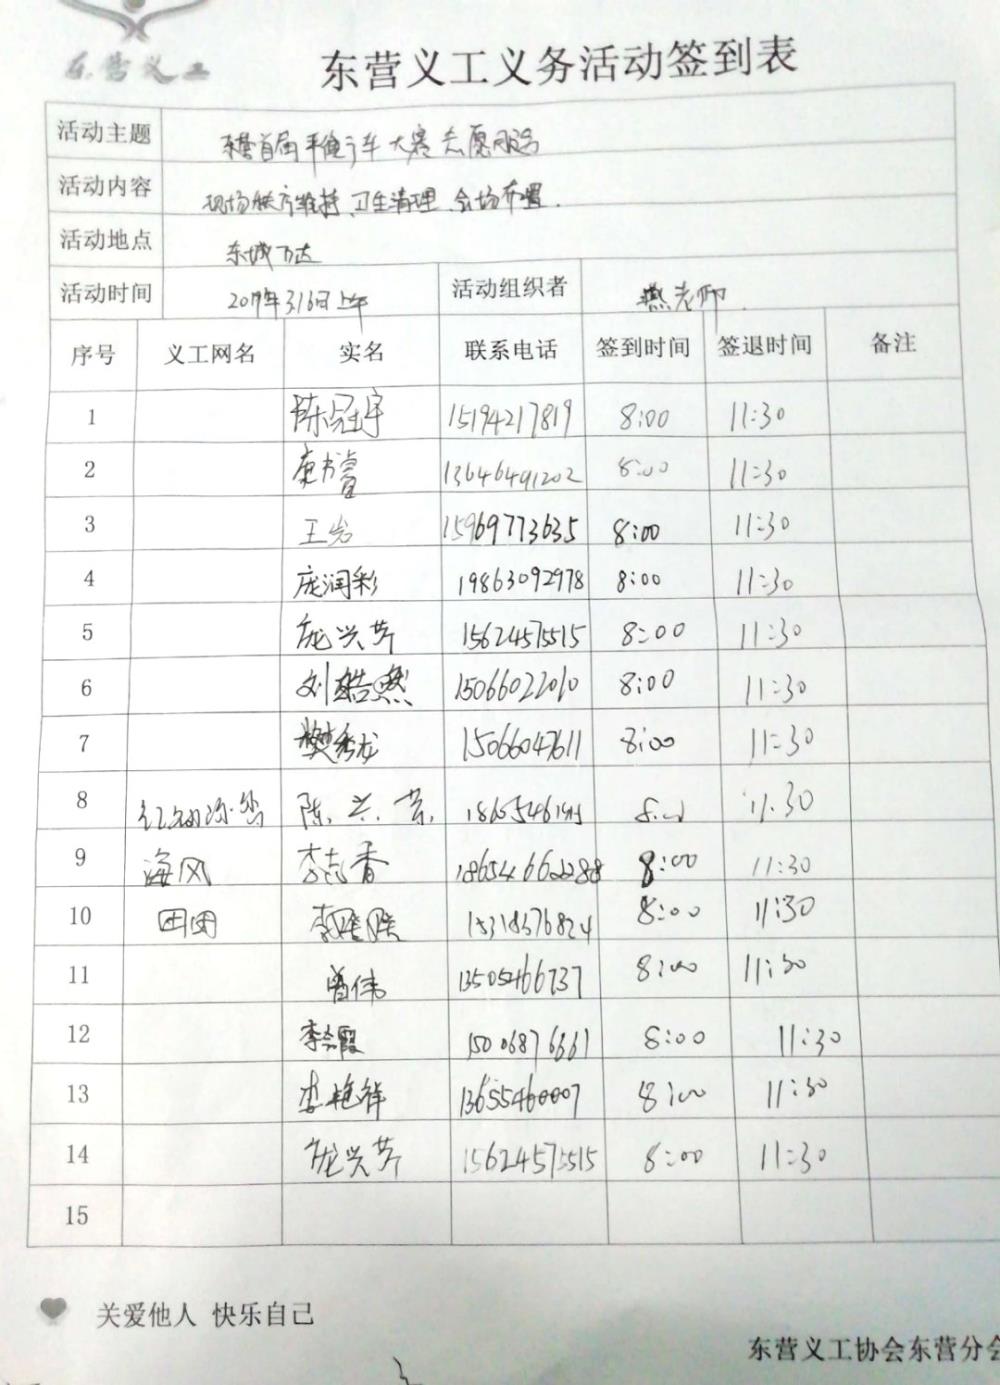 东营义工
东营义工义务活动签到表
活动主题 东营首届平衡车大赛志愿服务
活动内容 现场秩序维持、卫生清理、会场布置.
活动地点 东城万达
活动时间 2019年3月16日上午 活动组织者 燕老师.
序号 义工网名 实名 联系电话 签到时间 签退时间 备注
1 陈冠宇 15194217819 8:00 11:30
2 康书睿 13646491202 8:00 11:30
3 王岩 15969773635 8:00 11:30
4 庞润彩 19863092978 8:00 11:30
5 庞兴芹 15624575515 8:00 11:30
6 刘皓燃 15066022010 8:00 11:30
7 樊秀龙 15066047611 8:00 11:30
8 陈.兴.芳. 11.30
9 海风 李志香 8:00 11:30
10 团团 15318376824 8:00 11:30
11 曾伟 13505466737 8:00 11:30
12 李会霞 15006876661 8:00 11:30
13 李艳祥 13655460007 8:00 11:30
14 庞兴芹 15624575515 8:00 11:30
15
关爱他人 快乐自己
东营义工协会东营分会